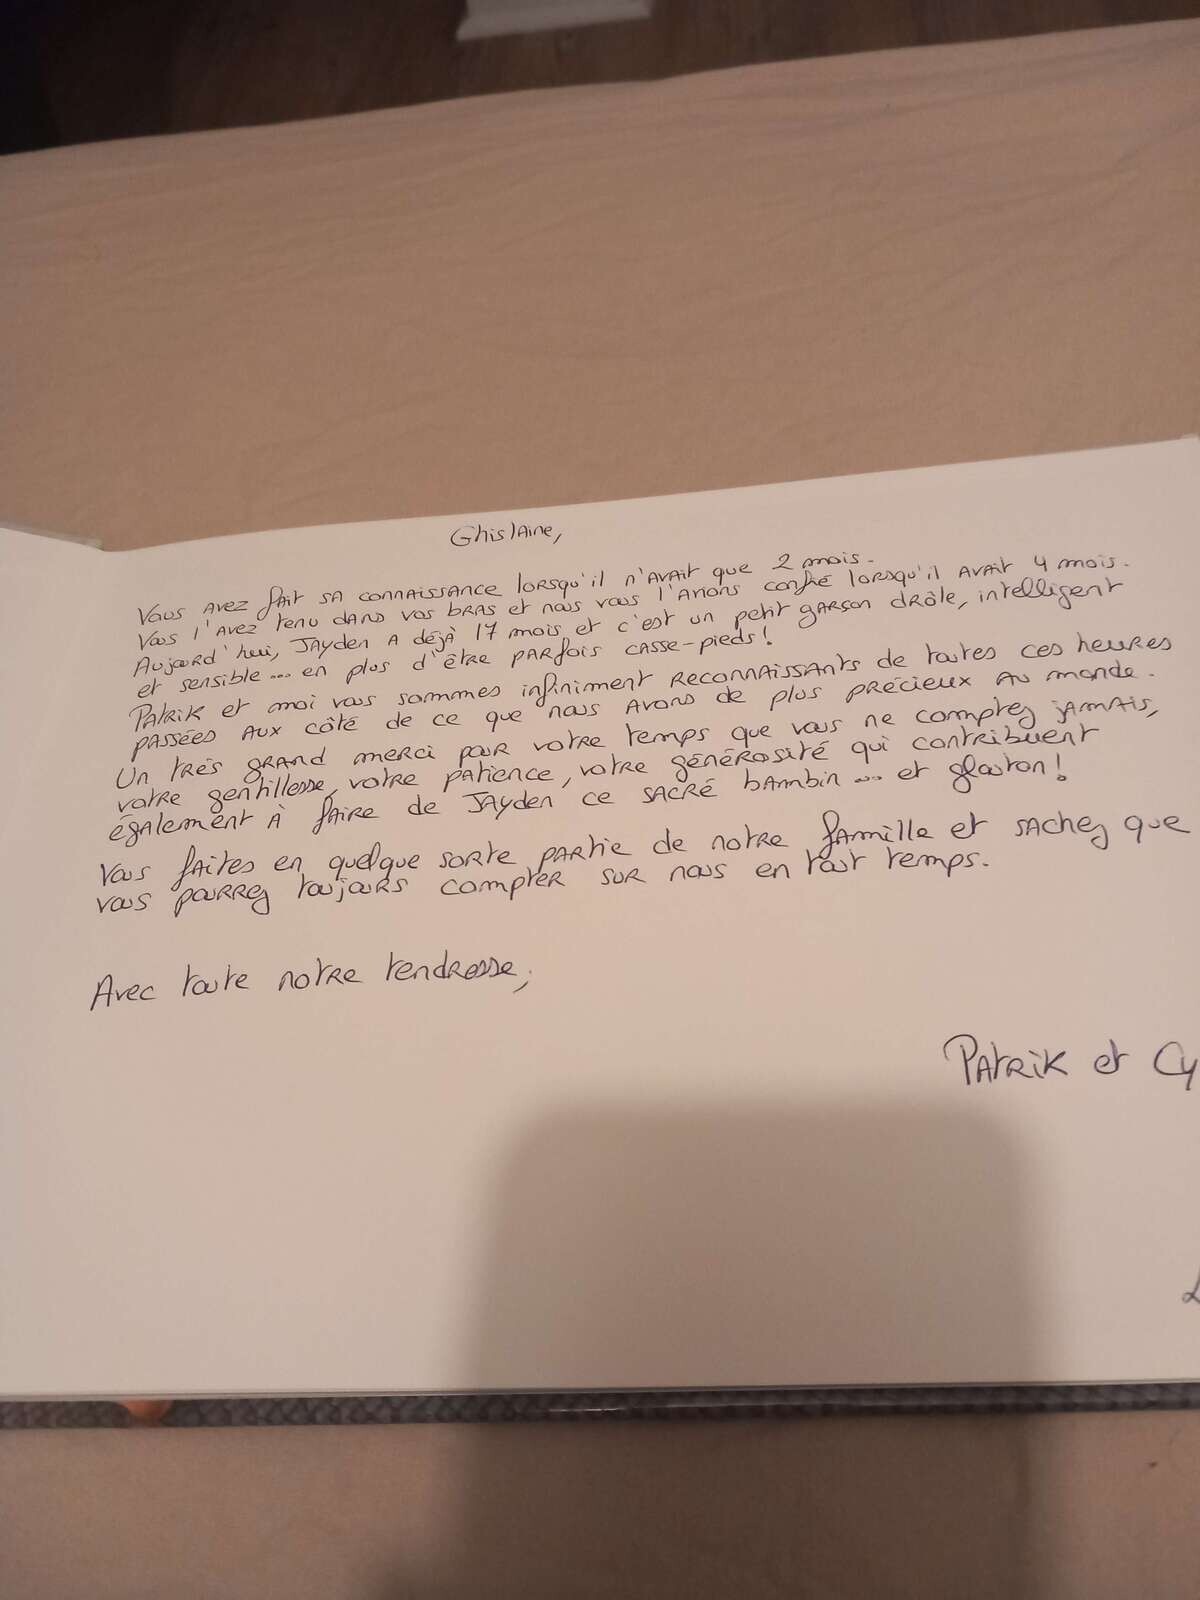 Ghislaine,
Vous avez fait sa connaissance lorsqu'il n'avait que 2 mois.
Vous l'avez tenu dans vos bras et nous vous l'avions confié lorsqu'il avait 4 mois.
Aujourd'hui, Jayden a déjà 17 mois et c'est un petit garçon drôle, intelligent
et sensible... en plus d'être parfois casse-pieds!
Patrik et moi vous sommes infiniment reconnaissants de toutes ces heures
passées aux côté de ce que nous avons de plus précieux au monde.
Un très grand merci pour votre temps que vous ne comptez jamais,
votre gentillesse, votre patience, votre générosité qui contribuent
également à faire de Jayden ce sacré bambin... et glouton!
Vous faites en quelque sorte partie de notre famille et sachez que
vous pourrez toujours compter sur nous en tout temps.
Avec toute notre tendresse,
Patrik et Cy